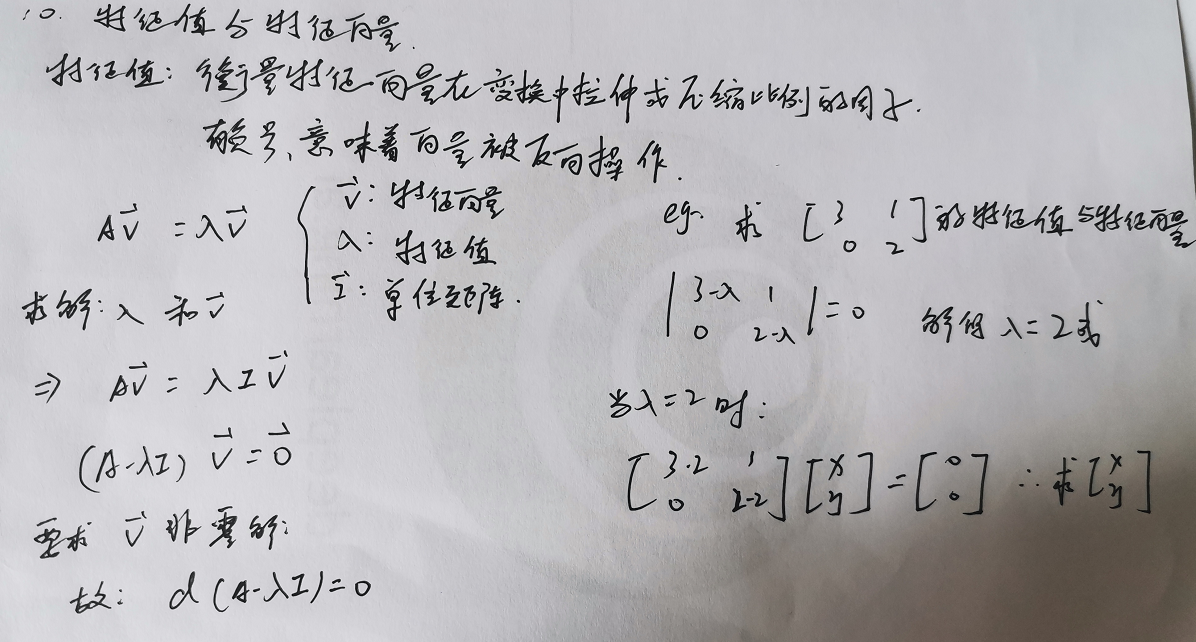 10. 特征值与特征向量.
特征值: 衡量特征向量在变换中拉伸或压缩比例的因子.
有负号、意味着向量被反向操作.
A\vec{v} = λ\vec{v}
\vec{v}: 特征向量
λ: 特征值
\vec{I}: 单位矩阵.
求解: λ 和 \vec{v}
⇒ A\vec{v} = λI\vec{v}
(A-λI) \vec{v} = \vec{0}
要求 \vec{v} 非零解:
故: d(A-λI)=0
eg. 求 [3 1; 0 2] 的特征值与特征向量
|3-λ 1; 0 2-λ| = 0 解得 λ=2或
当λ=2时:
[3-2 1; 0 2-2] [x; y] = [0; 0] ∴求 [x; y]